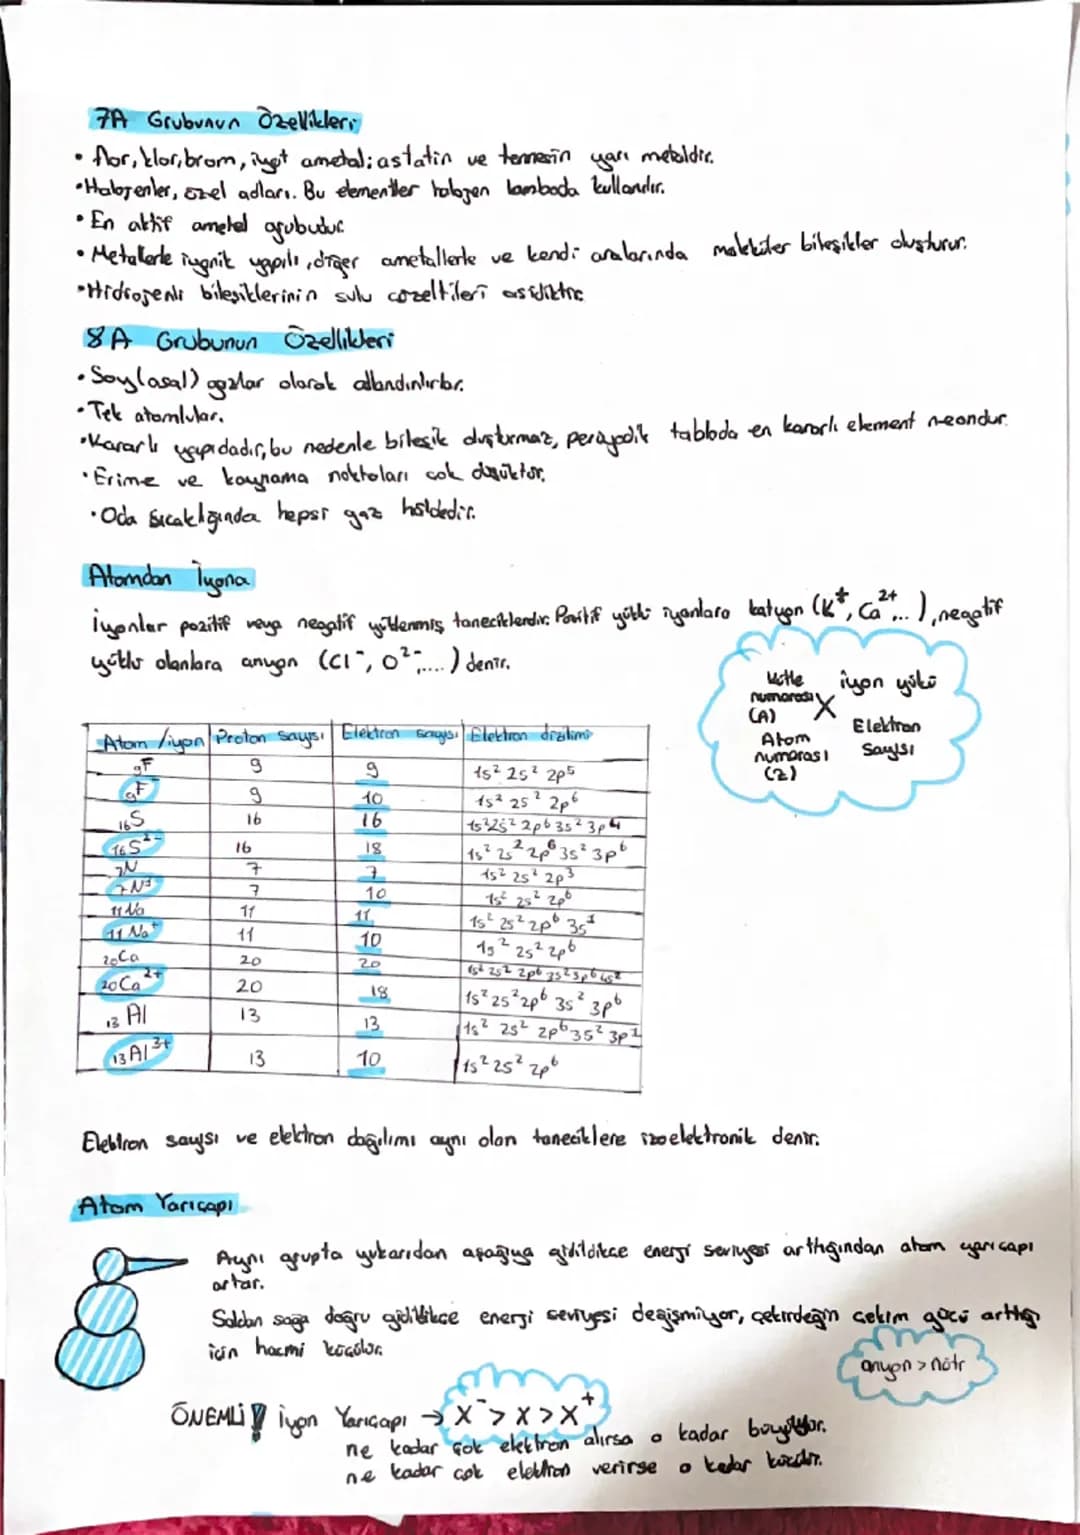 7A Grubunun Özellikleri
• flor, klor, brom, iyot ametal; astatin ve tennesin yarı metaldir.
• Halojenler, özel adları. Bu elementler halojen lambada kullanılır.
• En aktif ametal grubudur.
• Metallerle iyonik yapılı, diğer ametallerle ve kendi aralarında moleküler bileşikler oluşturur.
• Hidrojenli bileşiklerinin sulu çözeltileri asidiktir.
8A Grubunun Özellikleri
• Soy(asal) gazlar olarak adlandırılırlar.
• Tek atomlular.
• Kararlı yapıdadır, bu nedenle bileşik oluşturmaz, periyodik tabloda en kararlı element neondur.
• Erime ve kaynama noktaları çok düşüktür.
• Oda sıcaklığında hepsi gaz hâldedir.
Atomdan İyona
İyonlar pozitif veya negatif yüklenmiş taneciklerdir. Pozitif yüklü iyonlara katyon (K⁺, Ca²⁺...), negatif
yüklü olanlara anyon (Cl⁻, O²⁻,....) denir.
Kütle numarası (A)
iyon yükü
X
Atom numarası (Z)
Elektron Sayısı
Atom /iyon Proton sayısı Elektron sayısı Elektron dizilimi
₉F 9 9 1s² 2s² 2p⁵
₉F⁻ 9 10 1s² 2s² 2p⁶
₁₆S 16 16 1s² 2s² 2p⁶ 3s² 3p⁴
₁₆S²⁻ 16 18 1s² 2s² 2p⁶ 3s² 3p⁶
₇N 7 7 1s² 2s² 2p³
₇N³⁻ 7 10 1s² 2s² 2p⁶
₁₁Na 11 11 1s² 2s² 2p⁶ 3s¹
₁₁Na⁺ 11 10 1s² 2s² 2p⁶
₂₀Ca 20 20 1s² 2s² 2p⁶ 3s² 3p⁶ 4s²
₂₀Ca²⁺ 20 18 1s² 2s² 2p⁶ 3s² 3p⁶
₁₃Al 13 13 1s² 2s² 2p⁶ 3s² 3p¹
₁₃Al³⁺ 13 10 1s² 2s² 2p⁶
Elektron sayısı ve elektron dağılımı aynı olan taneciklere izoelektronik denir.
Atom Yarıçapı
Aynı grupta yukarıdan aşağıya gidildikçe energi seviyesi arttığından atom yarıçapı
artar.
Soldan sağa doğru gidildikçe energi seviyesi değişmiyor, çekirdeğin çekim gücü arttığı
için hacmi küçülür.
anyon > nötr
ÖNEMLİ! iyon Yarıçapı → X⁻ > X > X⁺
ne kadar çok elektron alırsa o kadar büyüktür.
ne kadar çok elektron verirse o kadar küçülür.